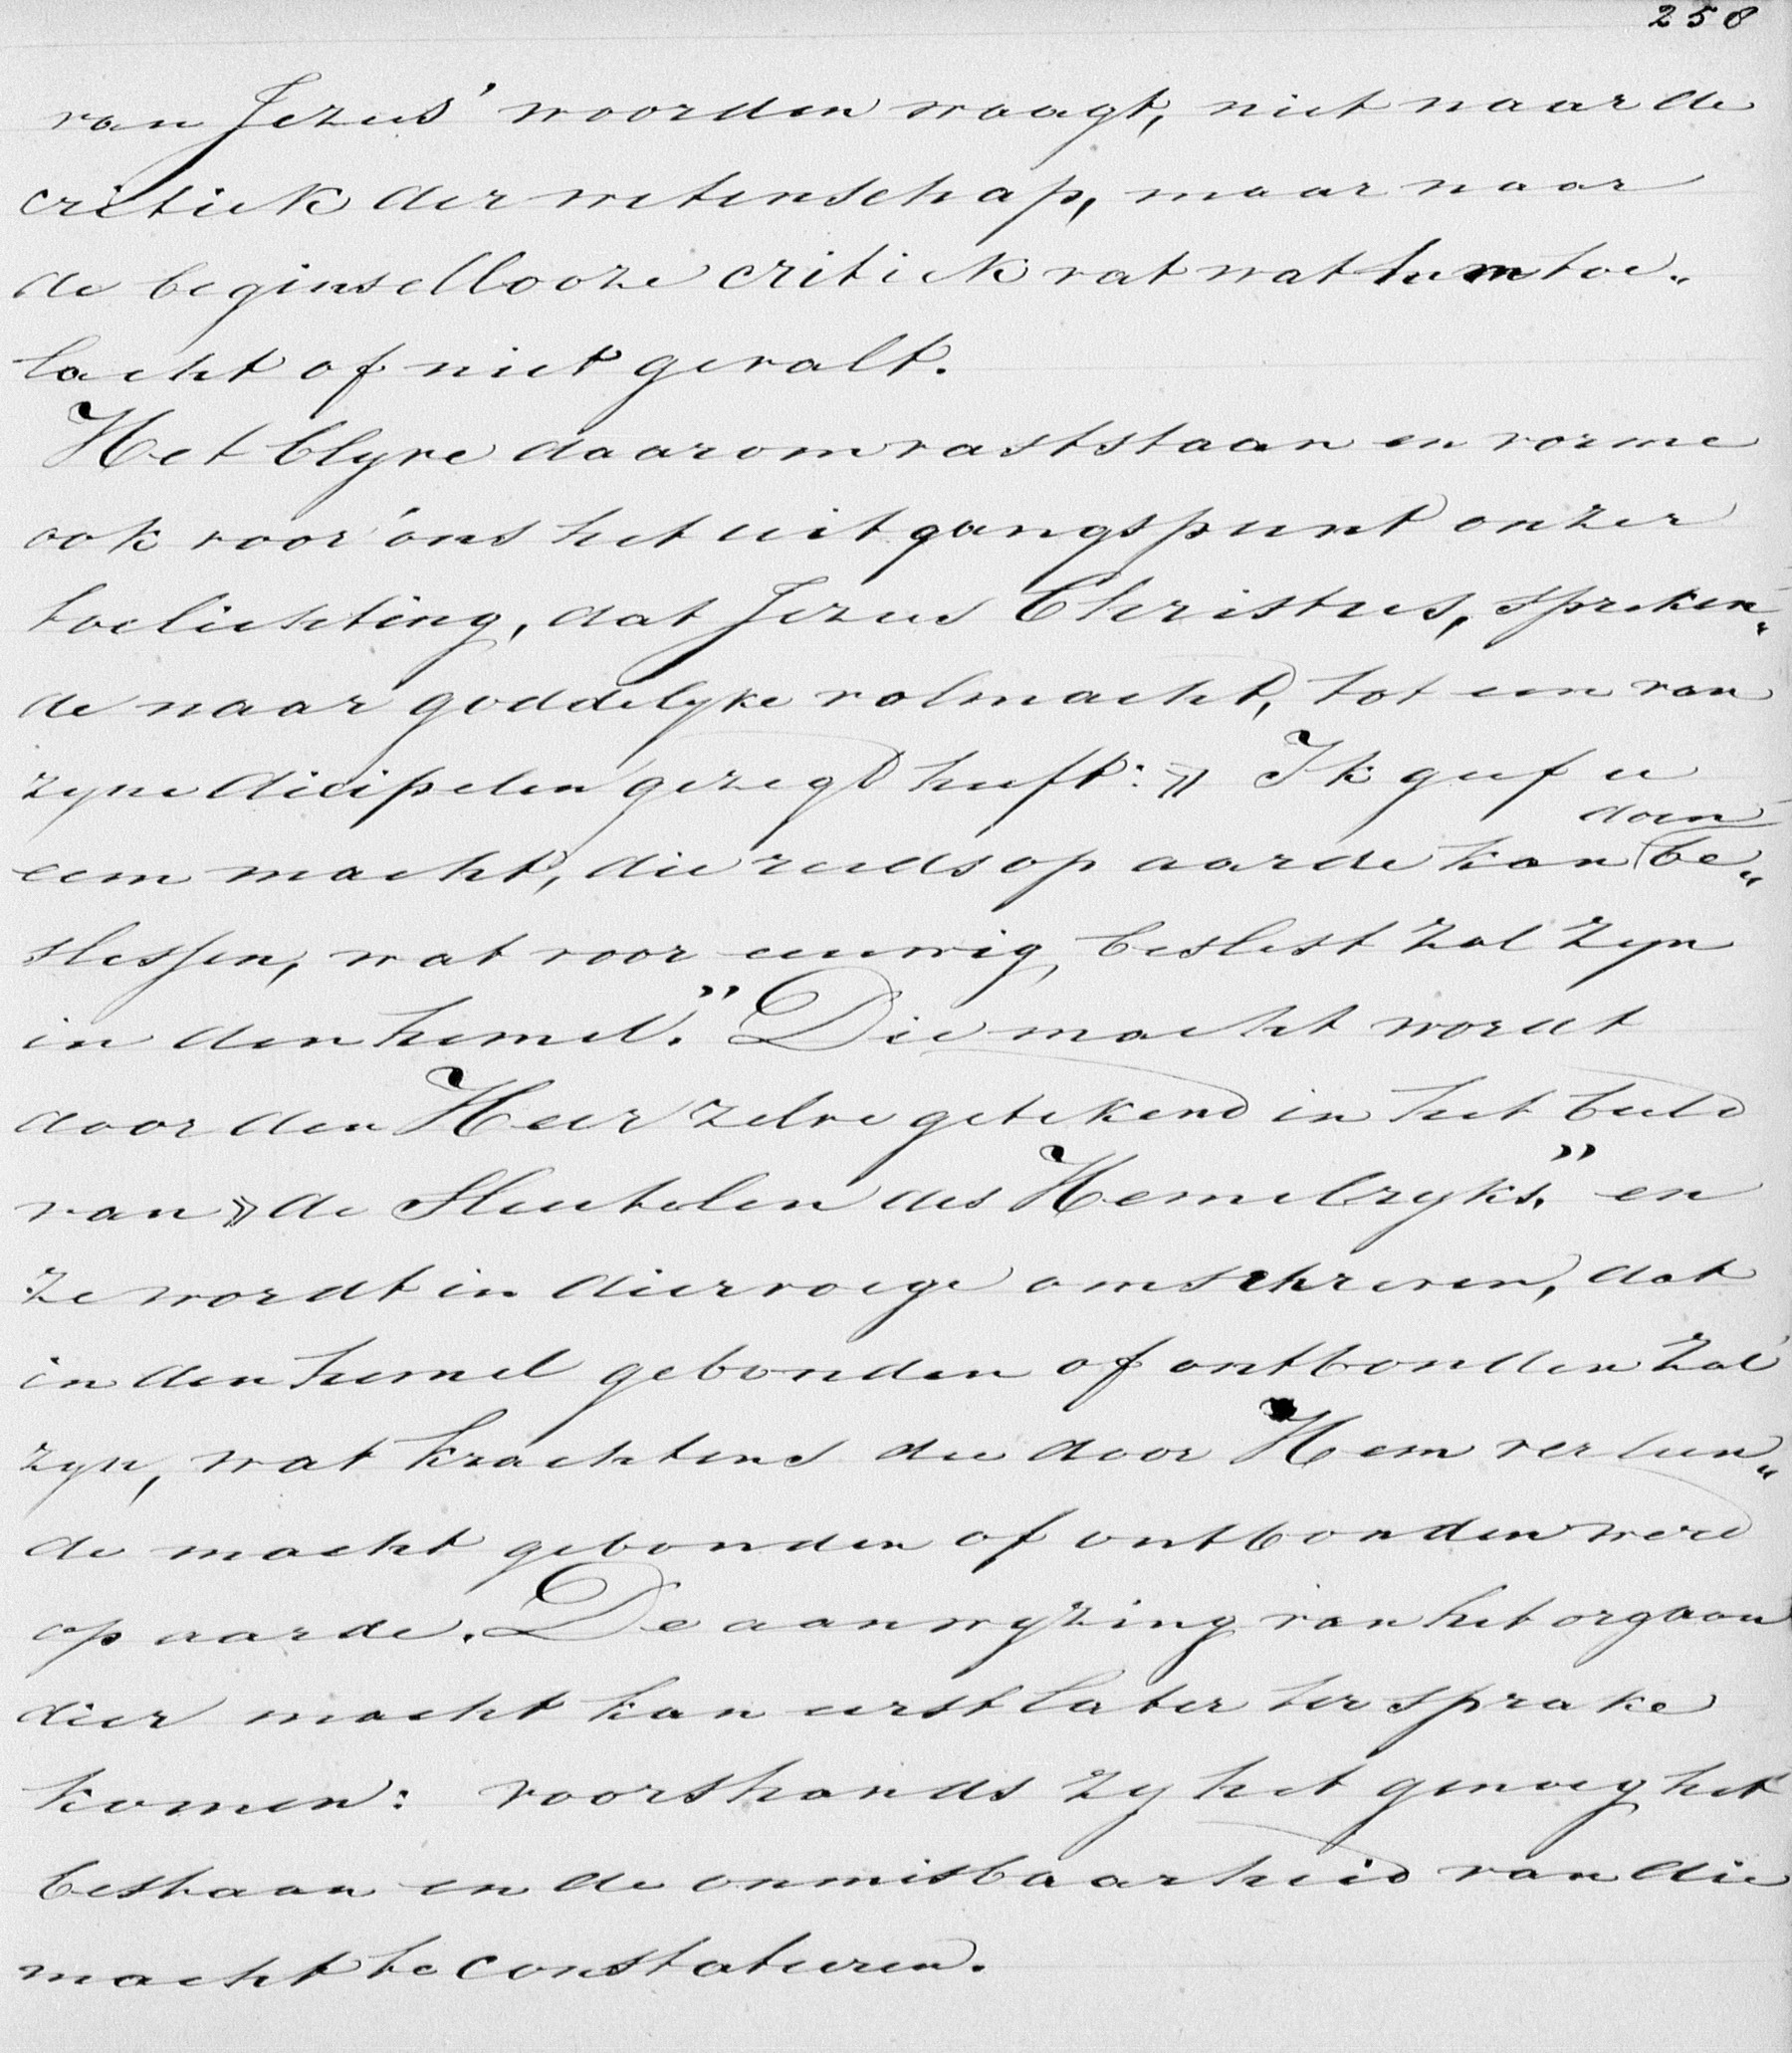 258
van Jezus' woorden waagt, niet naar de
critiek der wetenschap, maar naar
de beginsellooze critiek vat wat hem toe„
lacht of niet gevalt.
Het blyve daarom vaststaan en vorme
ook voor ons het uitgangspunt onzer
toelichting, dat Jezus Christus, spreken„
de naar goddelyke volmacht, tot een van
zyne dicipelen gezegd heeft: „Ik geef u
doen
eem macht, die reeds op aarde kan be„
slessen, wat voor eeuwig beslest zal zyn
in den hemel.” Die macht wordt
door den Heer zelve getekend in het beeld
van „de Sleutelen des Hemelryks.” en
ze wordt in diervoege omschreven, dat
in den hemel gebonden of ontbonden zal
zyn, wat krachtens die door Hem verleen„
de macht gebonden of ontbonden werd
op aarde. De aanwyzing van het orgaan
dier macht kan eerst later ter sprake
komen: voorshands zy het genoeg het
bestaan en de onmisbaarheid van die
macht te constateeren.